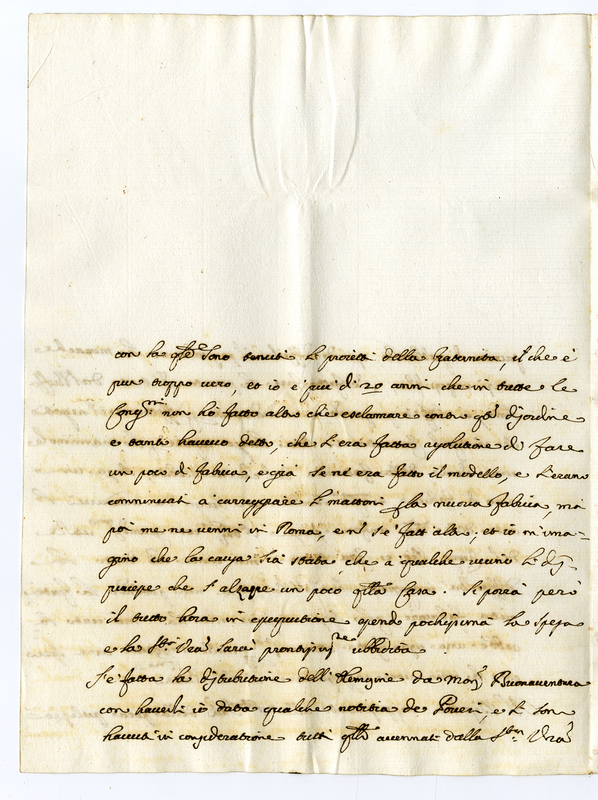 con la qle sono tenuti li proietti della fraternita, il che è
pur troppo vero, et io è piu di 20 anni che in tutte le
Congni non ho fatto altro che esclamare contro qto disordine
e tanto havevo detto, che s'era fatta risolutione di fare
un poco di fabrica, e già se ne era fatto il modello, e s'erano
cominciati a carreggiare li mattoni p la nuova fabrica, mà
poi me ne venni in Roma, e nè s'è fatt altro; et io m'ima-
gino che la causa sia stata, che a qualche vicino li dis-
piacesse che s'alzasse un poco qlla Casa. Si porrà però
il tutto hora in esequutione essendo pochissima la spesa
e la Stà Vra sarà prontissimte ubbidita.
S'è fatta la distributione dell'elemosine da Monsr Buonaventura
con haverli io data qualche notitia de Poveri, e si son
havuti in consideratione tutti qlli accennati dalla Stà Vra